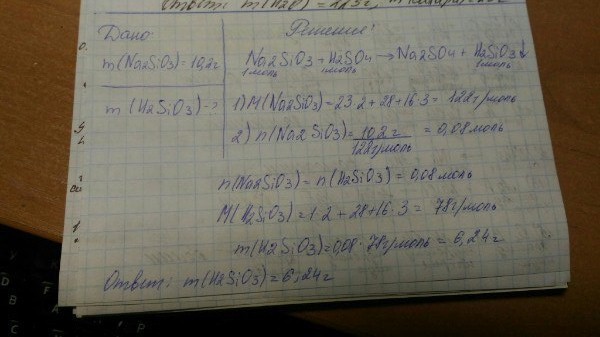 Ответ: m(H2O) = 22,5г,
Дано: Решение:
m(Na2SiO3)=10,2г
Na2SiO3 + H2SO4 → Na2SO4 + H2SiO3↓
1моль 1моль 1моль
m(H2SiO3)-?
1) M(Na2SiO3)=23·2+28+16·3 = 122г/моль
2) n(Na2SiO3)=10,2г/122г/моль = 0,08моль
n(Na2SiO3) = n(H2SiO3)=0,08моль
M(H2SiO3)=1·2+28+16·3 = 78г/моль
m(H2SiO3)=0,08·78г/моль = 6,24г
Ответ: m(H2SiO3)=6,24г